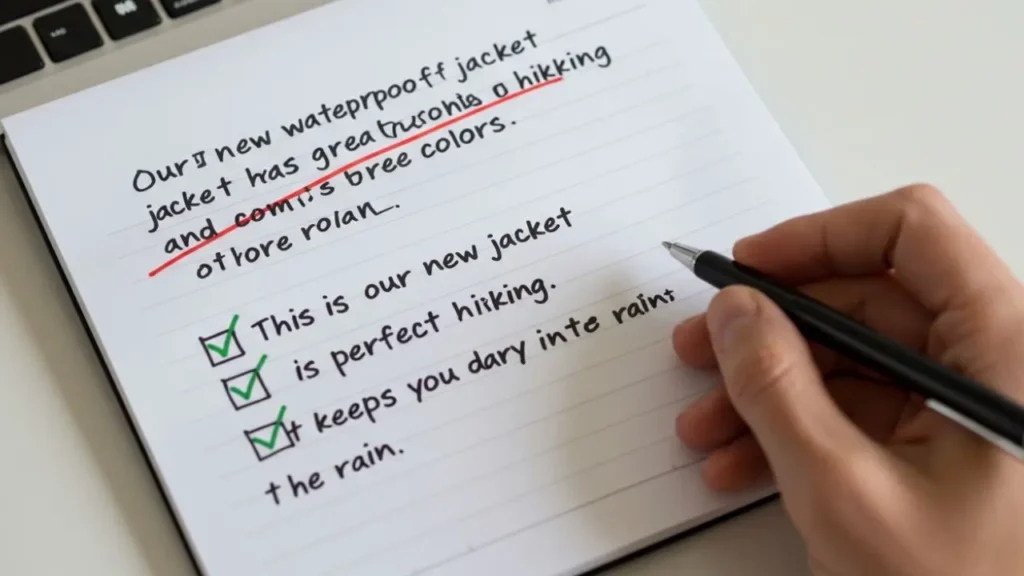 Our new waterproff jacket
jacket has grea hikking
and bree colors.
othore rolan.
This is our new jacket
is perfect hiking.
It keeps you dary inte rain
the rain.